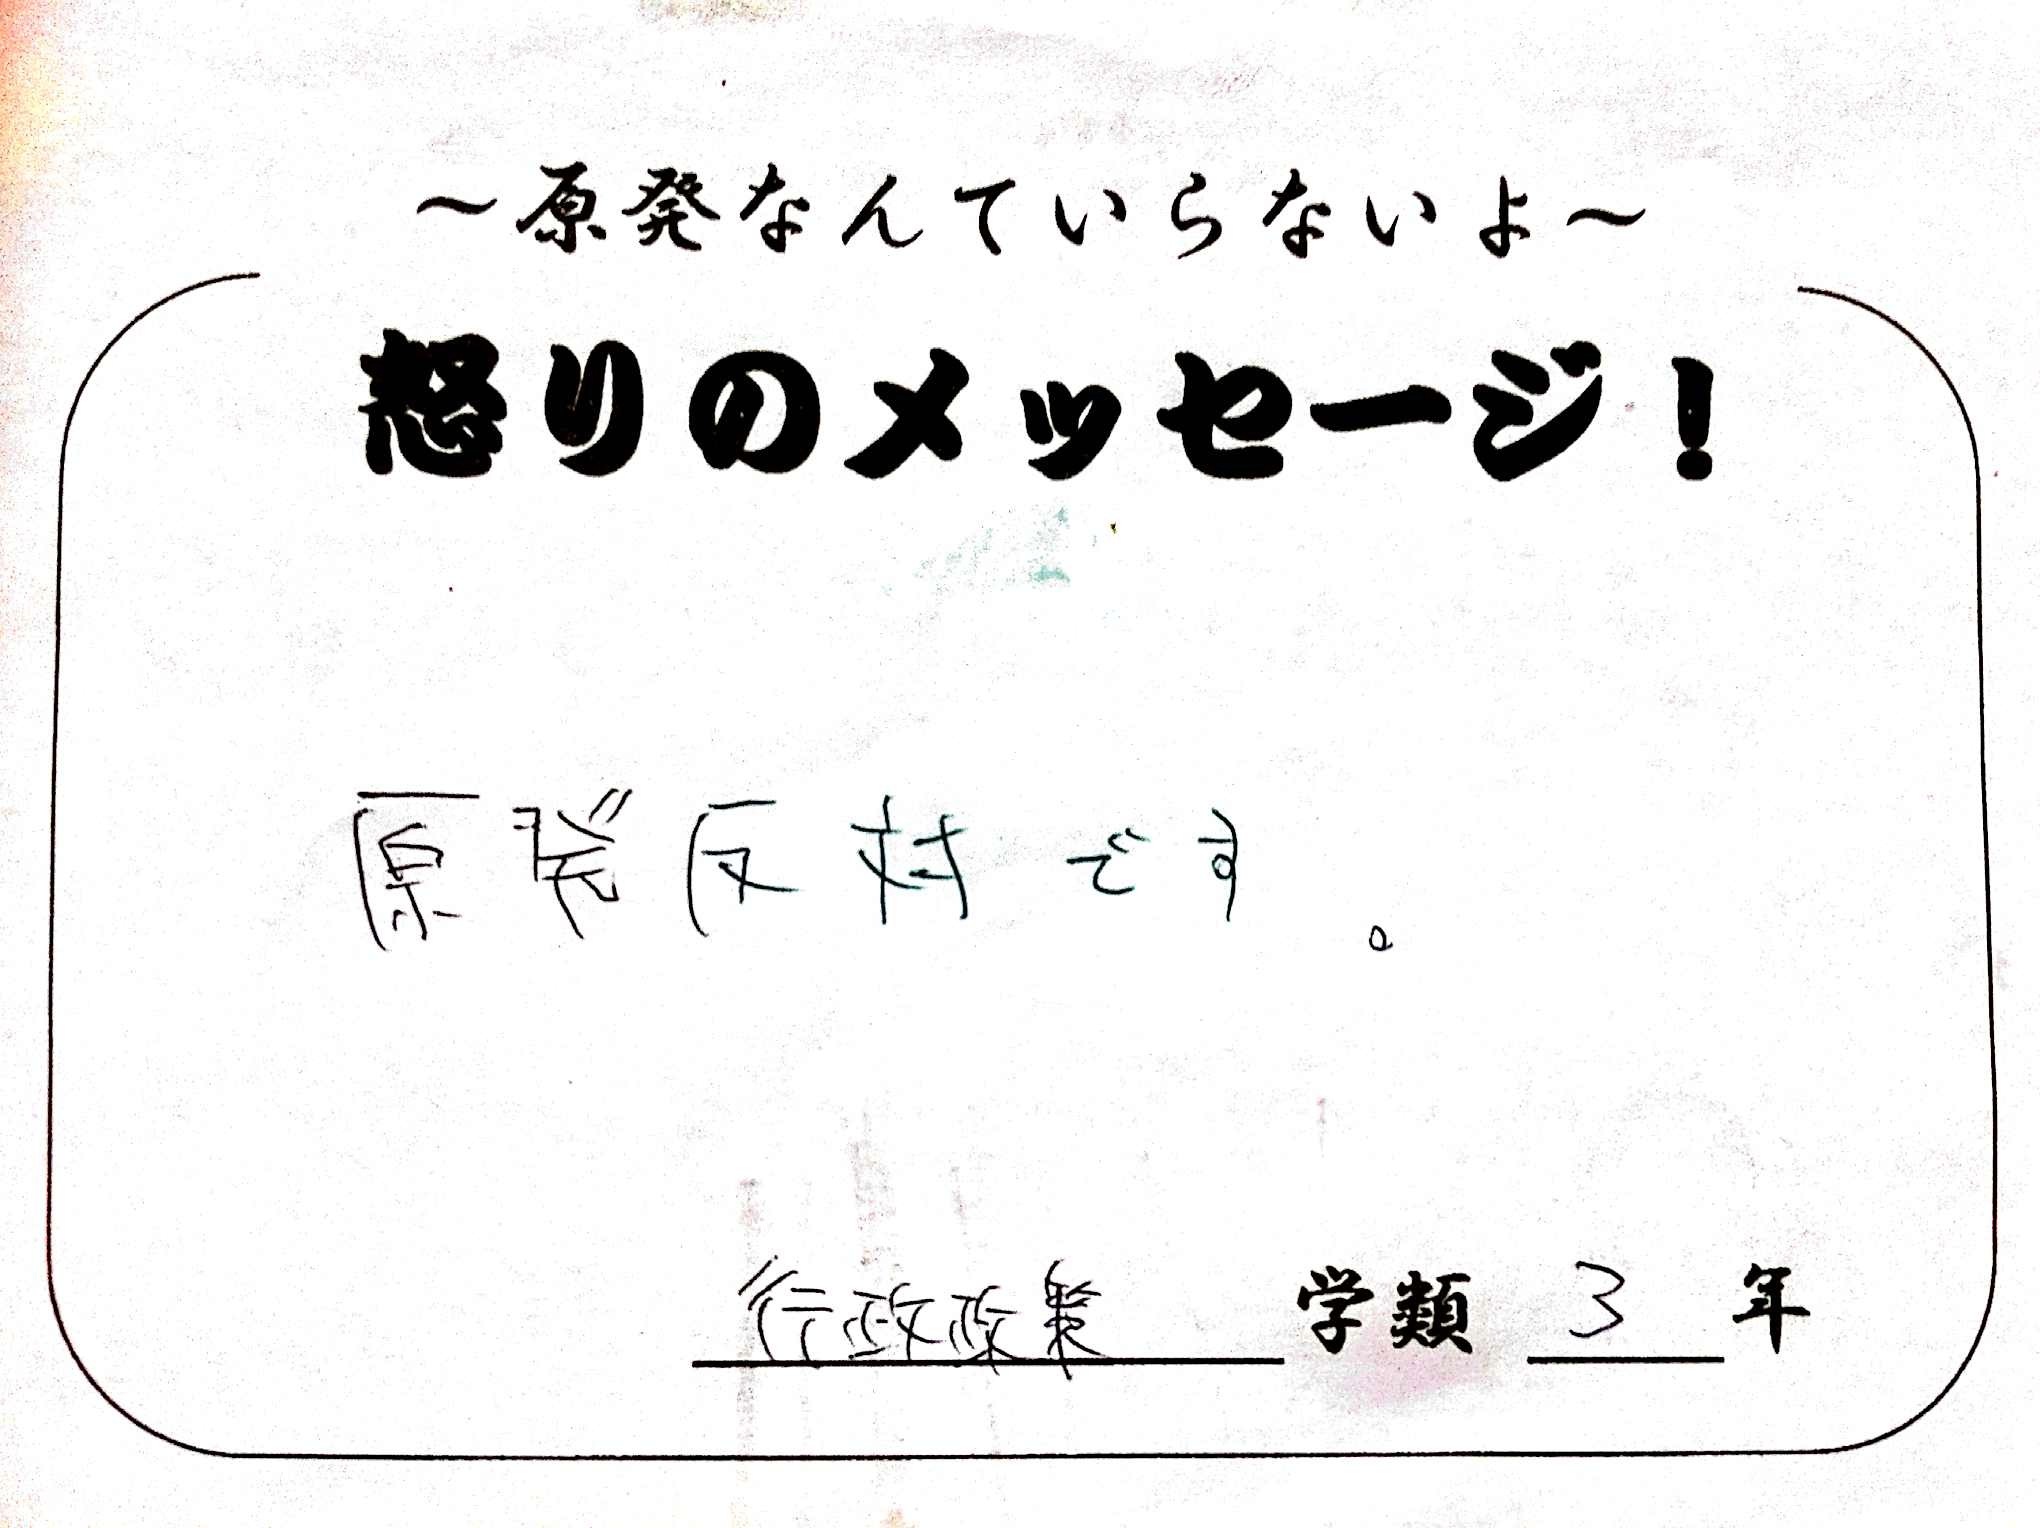 ～原発なんていらないよ～
怒りのメッセージ！
原発反対です。
行政政策学類 3年